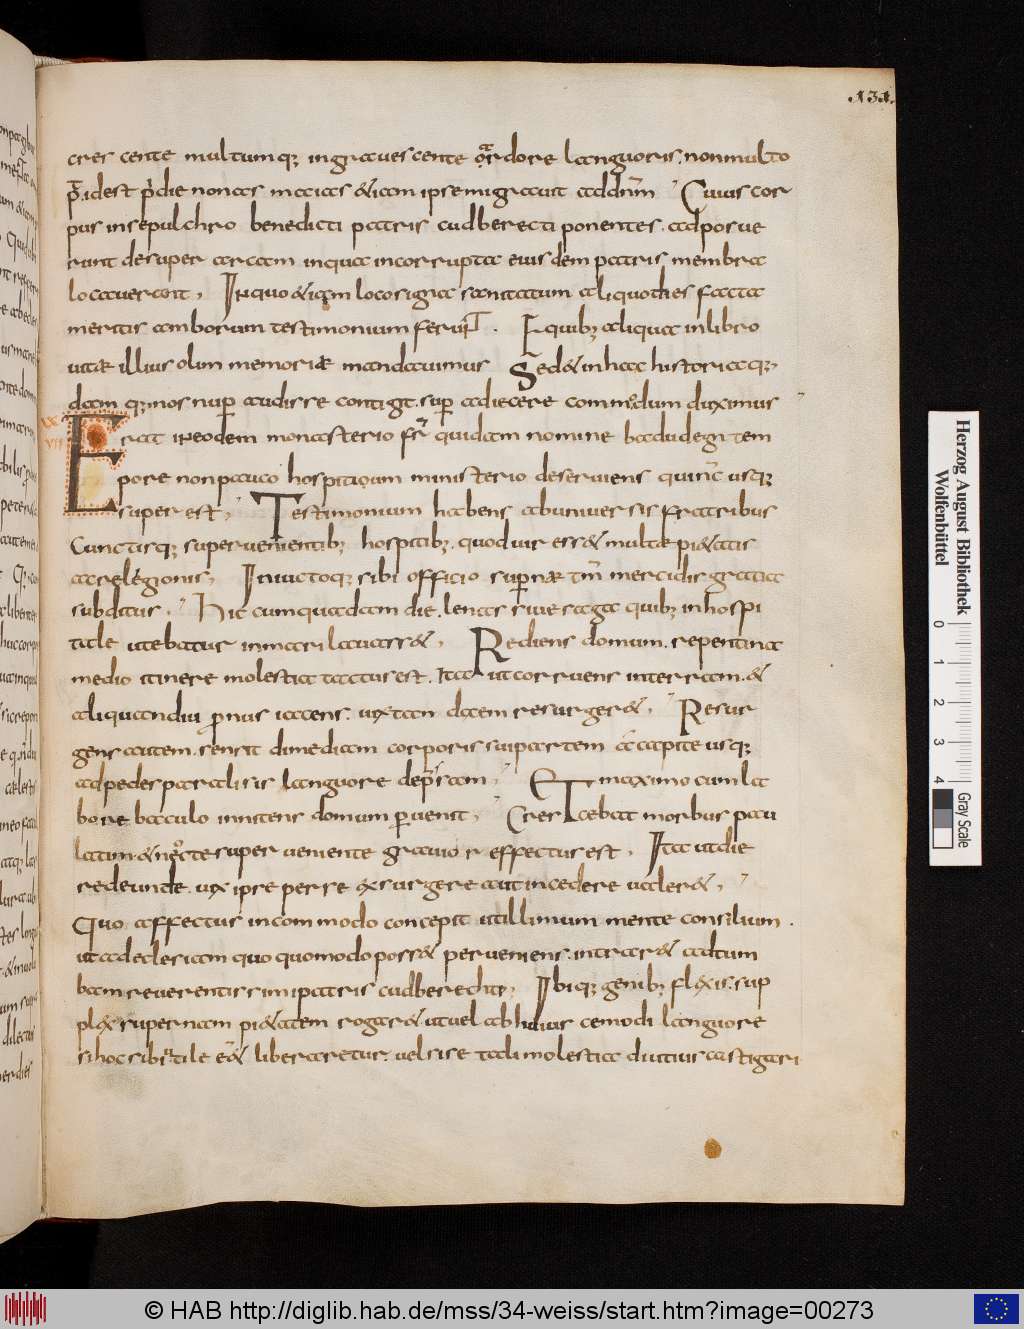 131.
cres cente multumq; ingrauescente ardore languoris. nonmulto
p̄. idest p̄die nonas maias &iam ipsemigrauit addn̄m Cuius cor
pus insepulchro benedicti patris cudberecti ponentes. adposue
runt desuper arcam inqua incorrupta eiusdem patris membra
locauerant, Inquo&iam locosigna sanitatum aliquoties facta
meritis amborum testimonium ferunt. Equib; aliqua inlibro
uitæ illius olim memoriæ mandauimus Sed&inhac historia q;
dam q;nos nuper audisse contigit. super adiecere commodum duximus
xx
vii
Erat ineodem monasterio fr̄ quidam nomine badudegn tem
pore nonpauco hospitioum ministerio deseruiens quinc̄ usq;
super est, Testimonium habens abuniuersis fratribus
Cunctisq; superuenientib; hospitib;. quoduir ess& multæ pi&atis
acrelegionis, Iniuctoq; sibi officio supernæ tm̄ mercidis gratia
subditus, Hic cumquadam die. lenas siue saga quib; inhospi
tale utebatur inmari lauass&, Rediens domum. repentina
medio itinere molestia tactusest. Ita utcorruens interram. &
aliquandiu pronus iacens. uixtan dem resurger&, Resur
gens autem. sensit dimediam corporis suipartem acapite usq;
adpedesparalisis languore depressam, Et maximo cumla
bore baculo innitens domum peruenit, Crescebat morbus pau
latim. & nocte super ueniente grauior effectus est, Ita utdie
redeunte. uix ipse per se exsurgere autincedere ualer&,
Quo affectus incommodo concepit utillimum mente consilium.
utadeclesiam quo quomodoposs& perueniens. intrar& adtum
bam reuerentissimipatris cudberechti, Ibiq; genib; flexis. sup
plex supernam pi&atem rogar& utuel abhuius cemodi languore
sihocsibi utile e&& liberaretur. uelsise tadi molestia diutius castigari
Herzog August Bibliothek
Wolfenbüttel
0 1 2 3 4
Gray Scale
© HAB http://diglib.hab.de/mss/34-weiss/start.htm?image=00273